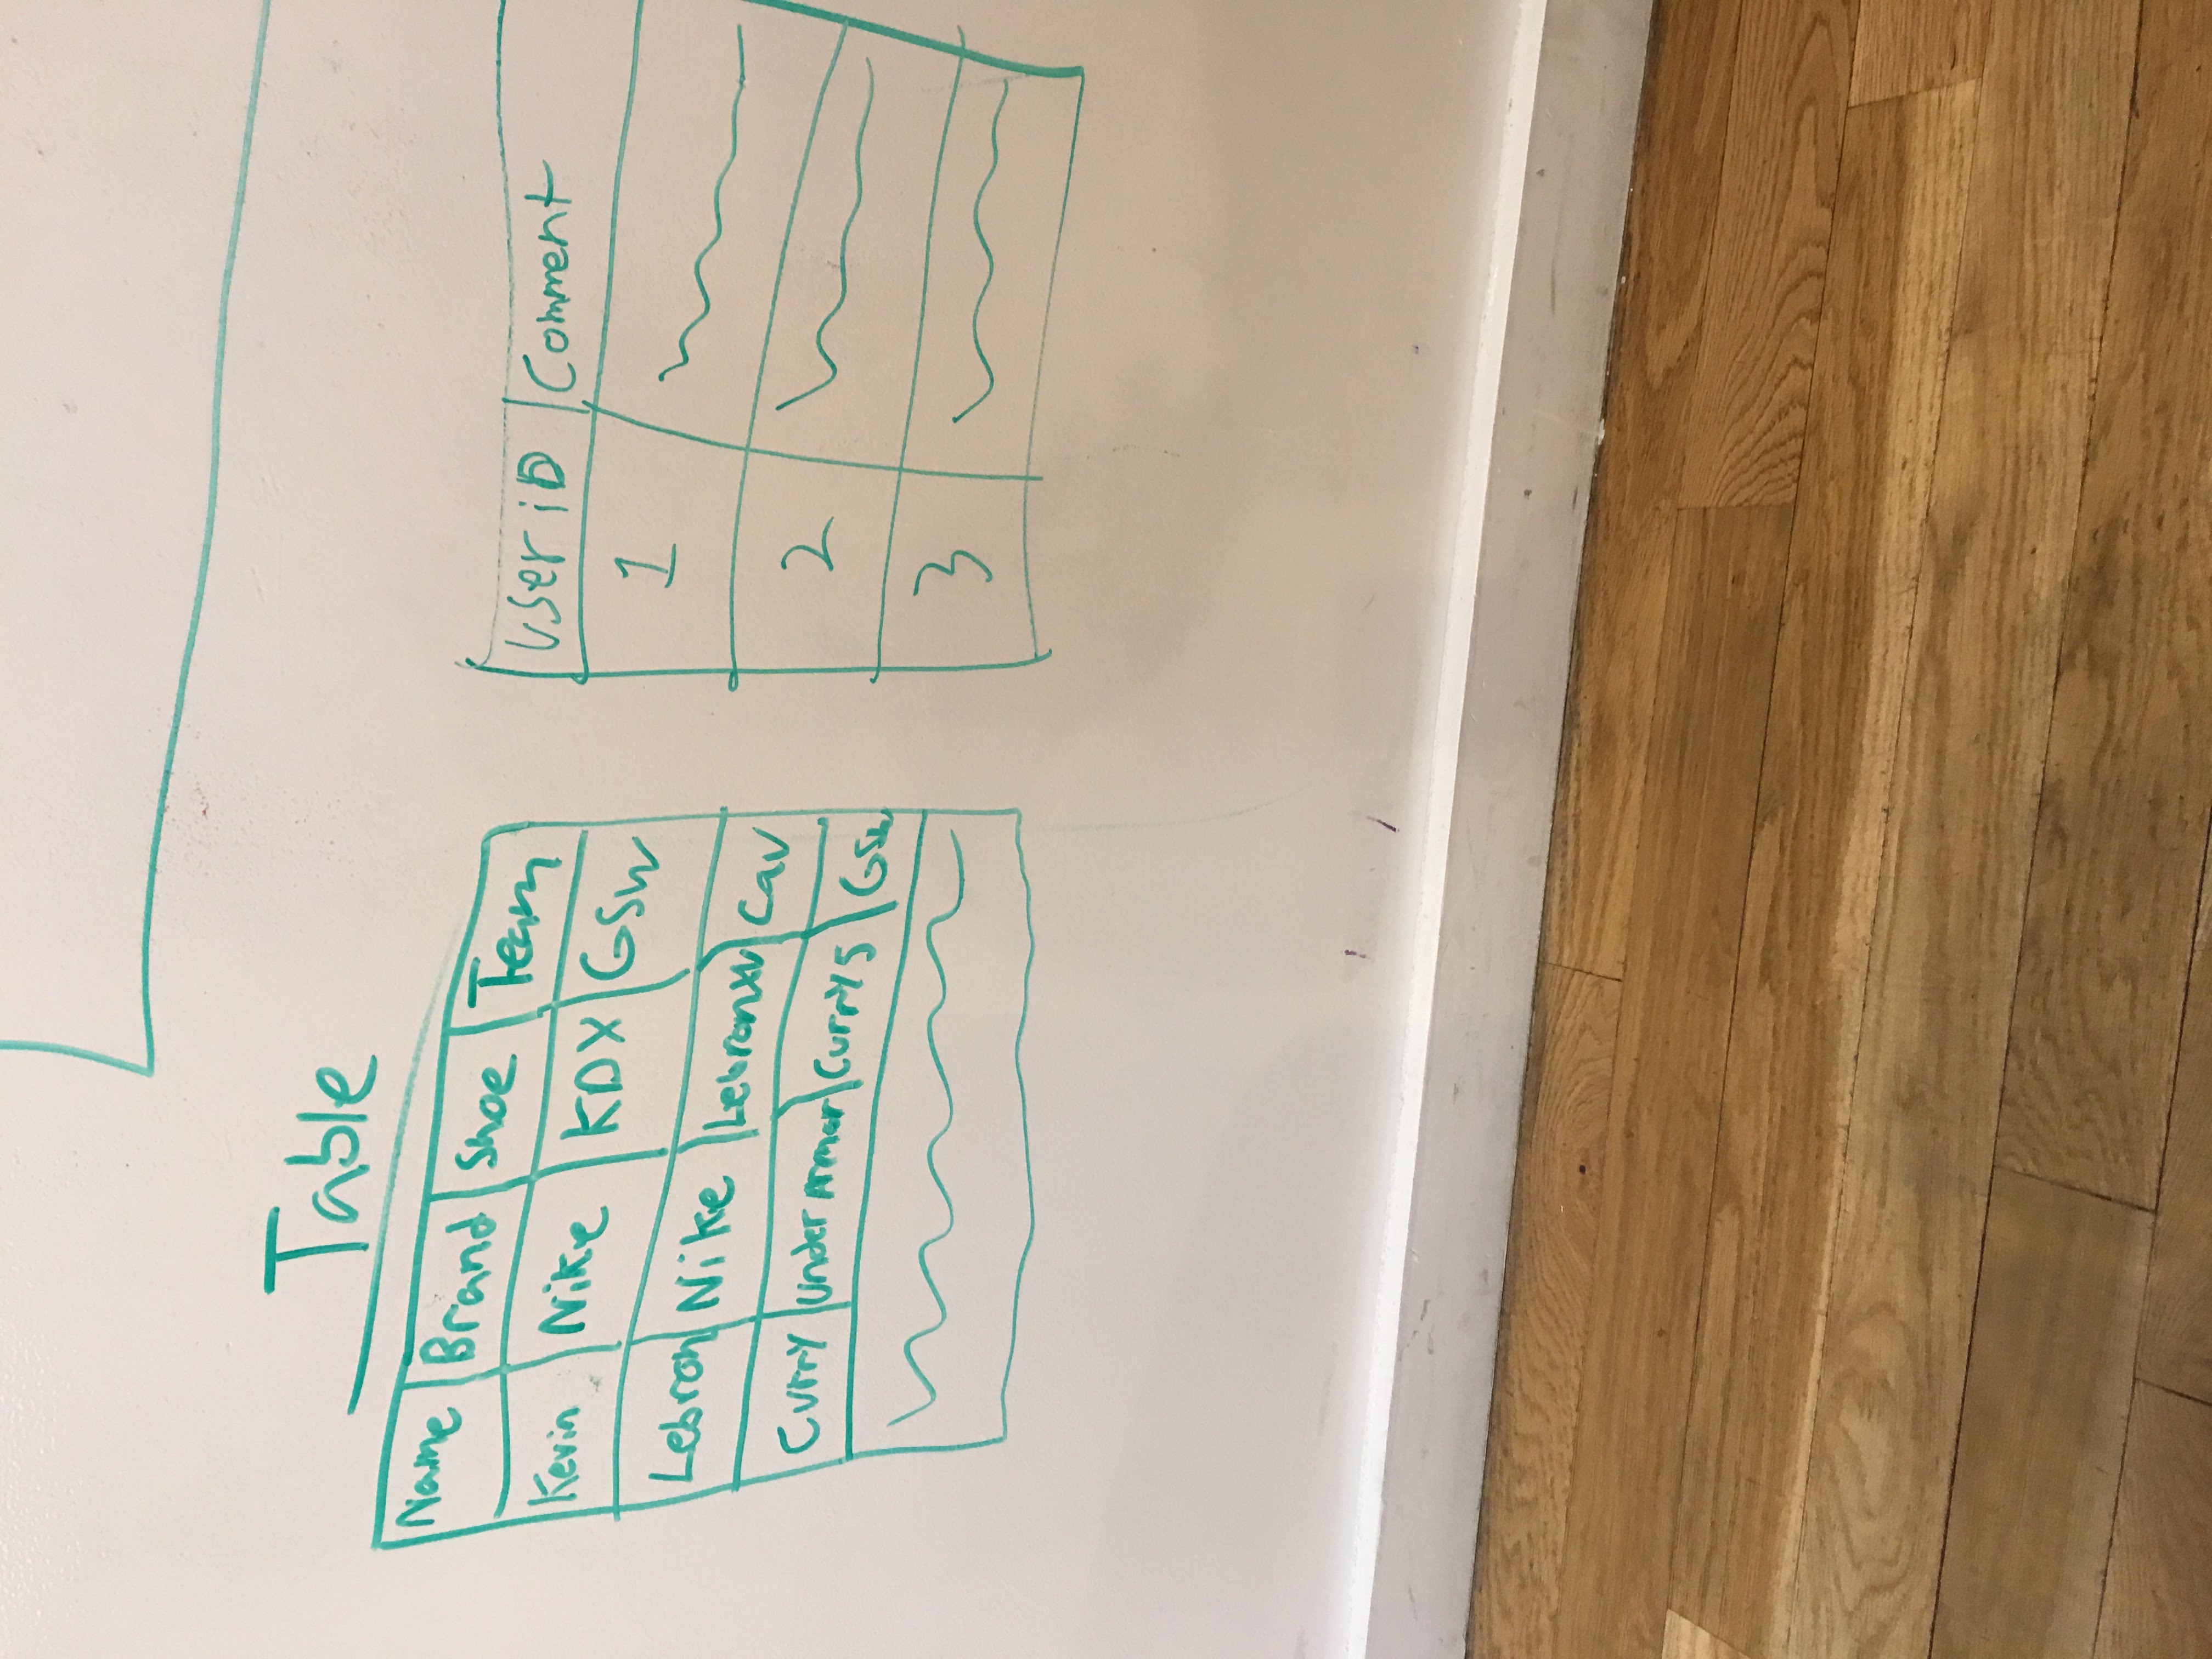 Table
Name Brand Shoe Team
Kevin Nike KDX GSW
Lebron Nike LebronXV Cav
Curry Under Armor Curry 5 GSW
User iD Comment
1
2
3